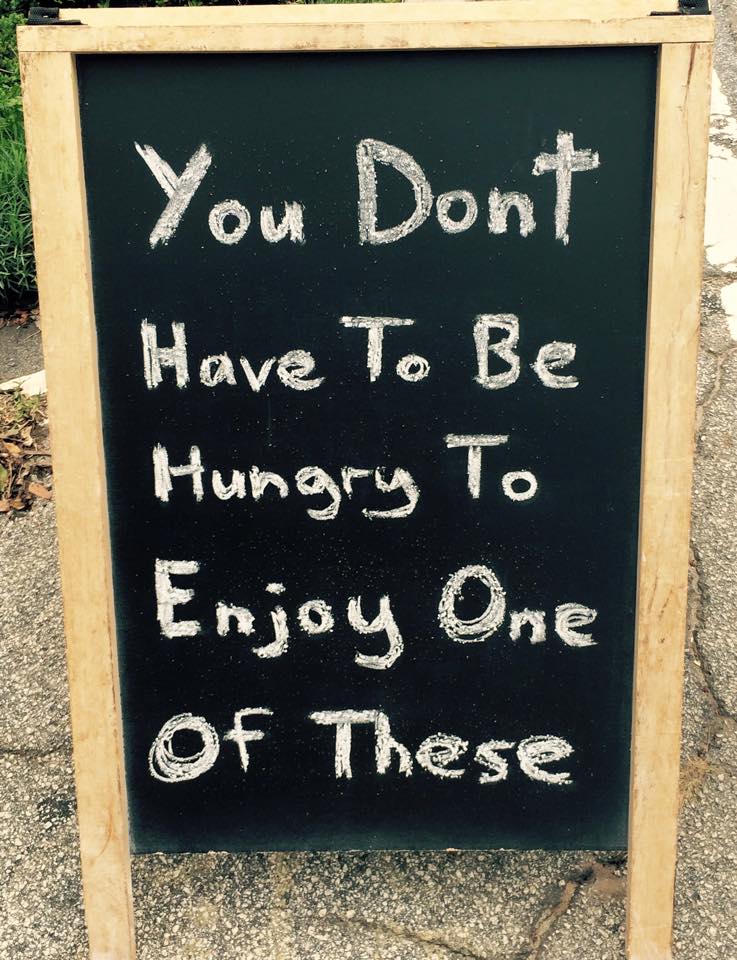 You Dont
Have To Be
Hungry To
Enjoy One
Of These